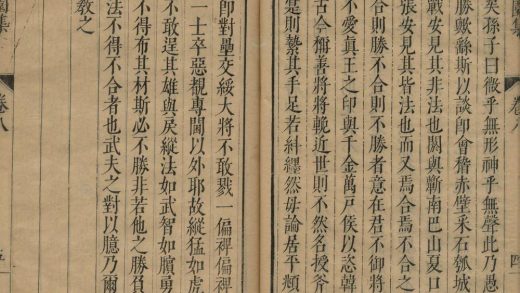 卷八
四
矣孫子曰微乎無形神乎無聲此乃愚
勝歟繇斯以談卽會稽赤壁采石瓠城
戰安見其非法也閼與蘄南巴山夏口
張安見其皆法也而又焉合焉不合之
合則勝不合則不勝者意在君不御將
不愛眞王之印與千金萬戶侯以恣韓
古今稱善將將輓近世則不然名授斧
是則縶其手足若糾纆然毋論居平頫
卽對壘交綏大將不敢戮一偏裨偏裨
一士卒惡覩專閫以外耶故縱猛如虎
不敢逞其雄與戾縱法如武智如臏勇
不得布其材斯必不勝非若他之勝負
法不得不合者也武夫之對以臆乃爾
教之
集
卷八
五